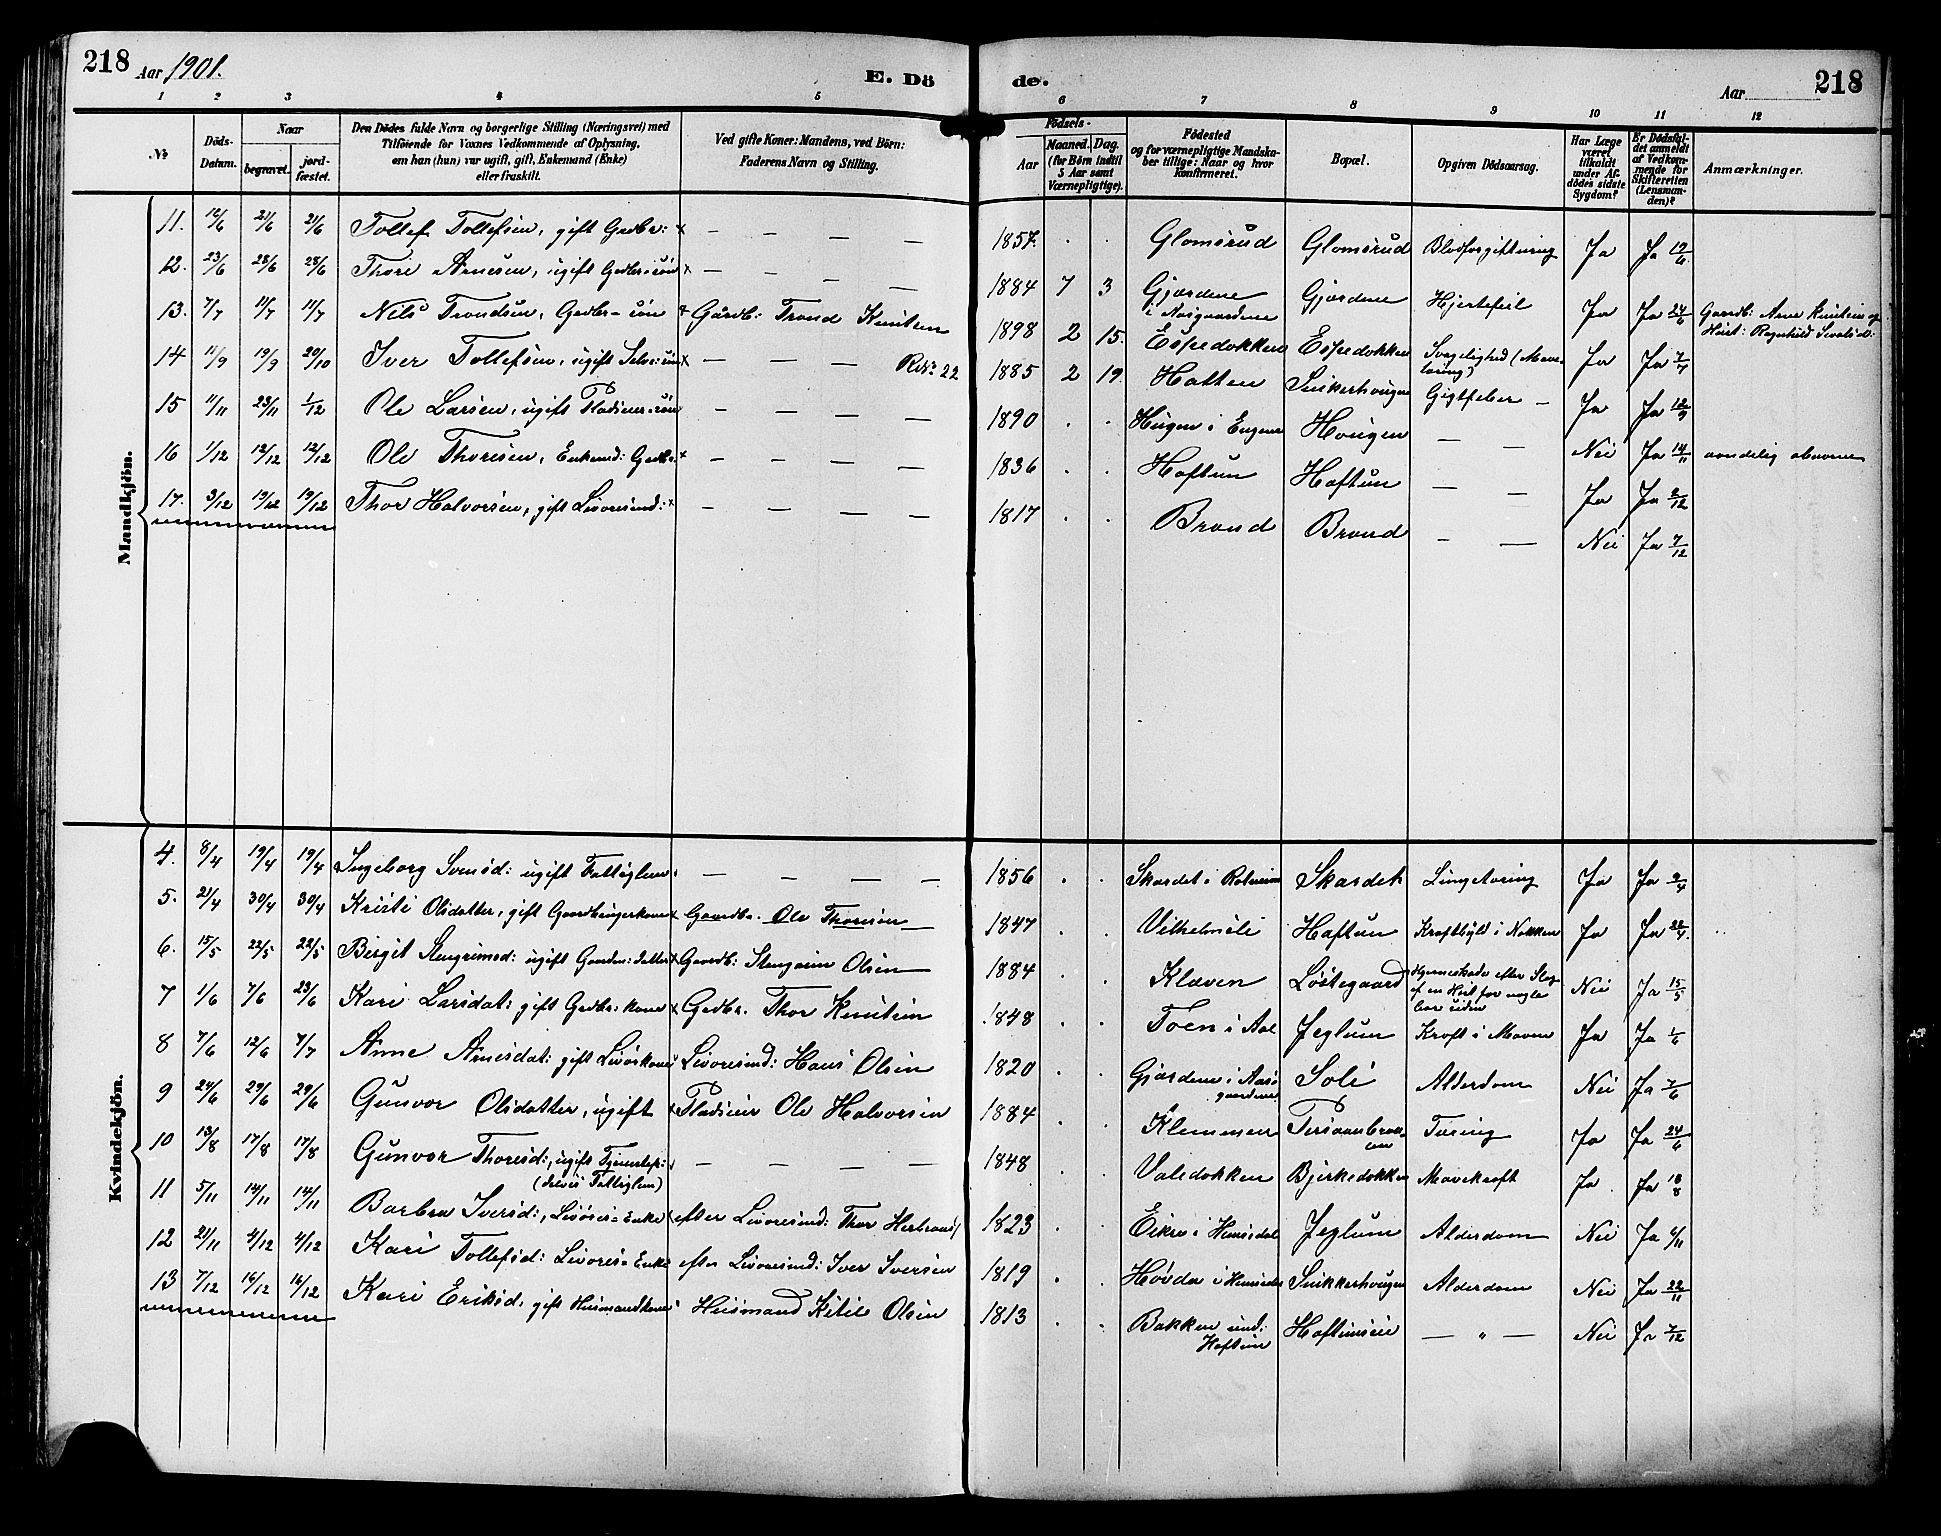 218 Aar 1901. E. Dö de. Aar 218
1 2 3 4 5 6 7 8 9 10 11 12
№
Döds-Datum.
Naar
begravet.
jord-fæstet.
Den Dödes fulde Navn og borgerlige Stilling (Næringsvei) med
Tilföiende for Voxnes Vedkommende af Oplysning,
om han (hun) var ugift, gift, Enkemand (Enke)
eller fraskilt.
Ved gifte Koner: Mandens, ved Börn:
Faderens Navn og Stilling.
Födsels-
Aar
Maaned. Dag.
(for Börn indtil
5 Aar samt
Værnepligtige).
Födested
og for værnepligtige Mandska-
ber tillige: Naar og hvor
Konfirmeret.
Bopæl.
Opgiven Dödsaarsag.
Har Læge
været
tilkaldt
under Af-
dödes sidste
Sygdom?
Er Dödsfal-
det anmeldt
af Vedkom-
mende for
Skifteretten
(Lensman-
den)?
Anmærkninger.
Mandkjön.
11. 12/6 21/6 21/6 Tollef Tollefsen, gift Gedbr: x — — — — 1857 . . Glomsrud Glomsrud Blodforgiftning Ja Ja 12/6
12. 23/6 28/6 28/6 Thore Arnesen, ugift Gedbr: søn x — — — 1884 7 3 Gjærdene i Aasgaardene Gjærdene Hjertefeil Ja Ja 24/6 Gaardb: Arne Knutsen og Hust: Ragnhild
13. 7/7 11/7 11/7 Nils Trondsen, Gedbr-søn Gaardb: Trond Knutsen 1898 2 15. Espedokken Espedokken Svagelighed (Mave-tæring) Ja Ja 7/7
14 11/9 19/9 20/10 Iver Tollefsen, ugift Selv: søn x — — R.№ 22 1885 2 19. Hatten Snikerhougen Gigtfeber — Ja Ja 12/9
15 11/11 23/11 1/12 Ole Larsen, ugift Pladseier-søn — — — — 1890 . . Haugen i Hougen — — Nei Ja 14/11 aandelig abnorm
16 1/12 12/12 12/12 Ole Thoresen, Enkemd: Gedbr. x — — — — 1836 . . Haftun Haftun — — Ja Ja 2/12
17. 3/12 19/12 19/12 Thor Halvorsen, gift Livøresmd: x — — — — 1817 . . Brand Brand — — Nei Ja 7/12
Kvindekjön.
4. 8/4 19/4 19/4 Ingeborg Svensd: ugift Fattiglem. — — — — 1856 . . Skardet i Skardet Lungetæring Ja Ja 9/4
5. 21/4 30/4 30/4 Kristi Olsdatter, gift Gaardbrugerkone x Gaardbr. Ole Thoresen 1847 . . Vilhelmsli Haftun Kræftbyld i Nakken Ja Ja 22/4.
6. 15/5 22/5 22/5 Birgit Stengrimsd: ugift Gaardm: datter x Gaardb: Stengrim Olsen 1884 . Kleven Løstegaard Hjerneskade efter Slag af en Hest for nogle Aar siden Nei Ja 15/5
7 1/6 7/6 23/6 Kari Larsdat: gift Gedbr: kone x Gedbr. Thor Knutsen 1848 . . Toen i Aal Jeglum Kræft i Maven Ja Ja 1/6
8 7/6 12/6 7/7 Anne Arnesdat: gift Livørskone Livøresmd: Hans Olsen 1820 . . Gjærdene i Aasgaardene Soli Alderdom Nei Ja 7/6
9 24/6 29/6 29/6 Gunvor Olsdatter, ugift Pladseier Ole Halvorsen 1884 . . Klemmen Tæring Ja Ja 24/6
10 13/8 17/8 17/8 Gunvor Thoresd:, ugift Tjenestep: (delvis Fattiglem) — — — — 1848 . . Valedokken Bjerkedokken Mavekræft Ja. Ja 18/8
11 5/11 14/11 14/11 Barbra Iversd:, Livøres-Enke efter Livøresmd: Thor Herbrands 1823 . . Eikre i Hemsedal Jeglum Alderdom Nei Ja 6/11
12 21/11 4/12 4/12 Kari Tollefsd: Livøres-Enke efter Livøresmd: Iver Iversen 1819 . . Høvda i Hemsedal Snikkerhougen Alderdom Nei Ja 22/11
13 7/12 16/12 16/12 Kari Eriksd, gift Husmandskone Husmand Kittil Olsen 1813 . . Bakken und: Haftun Haftunseie — " — Nei Ja 7/12